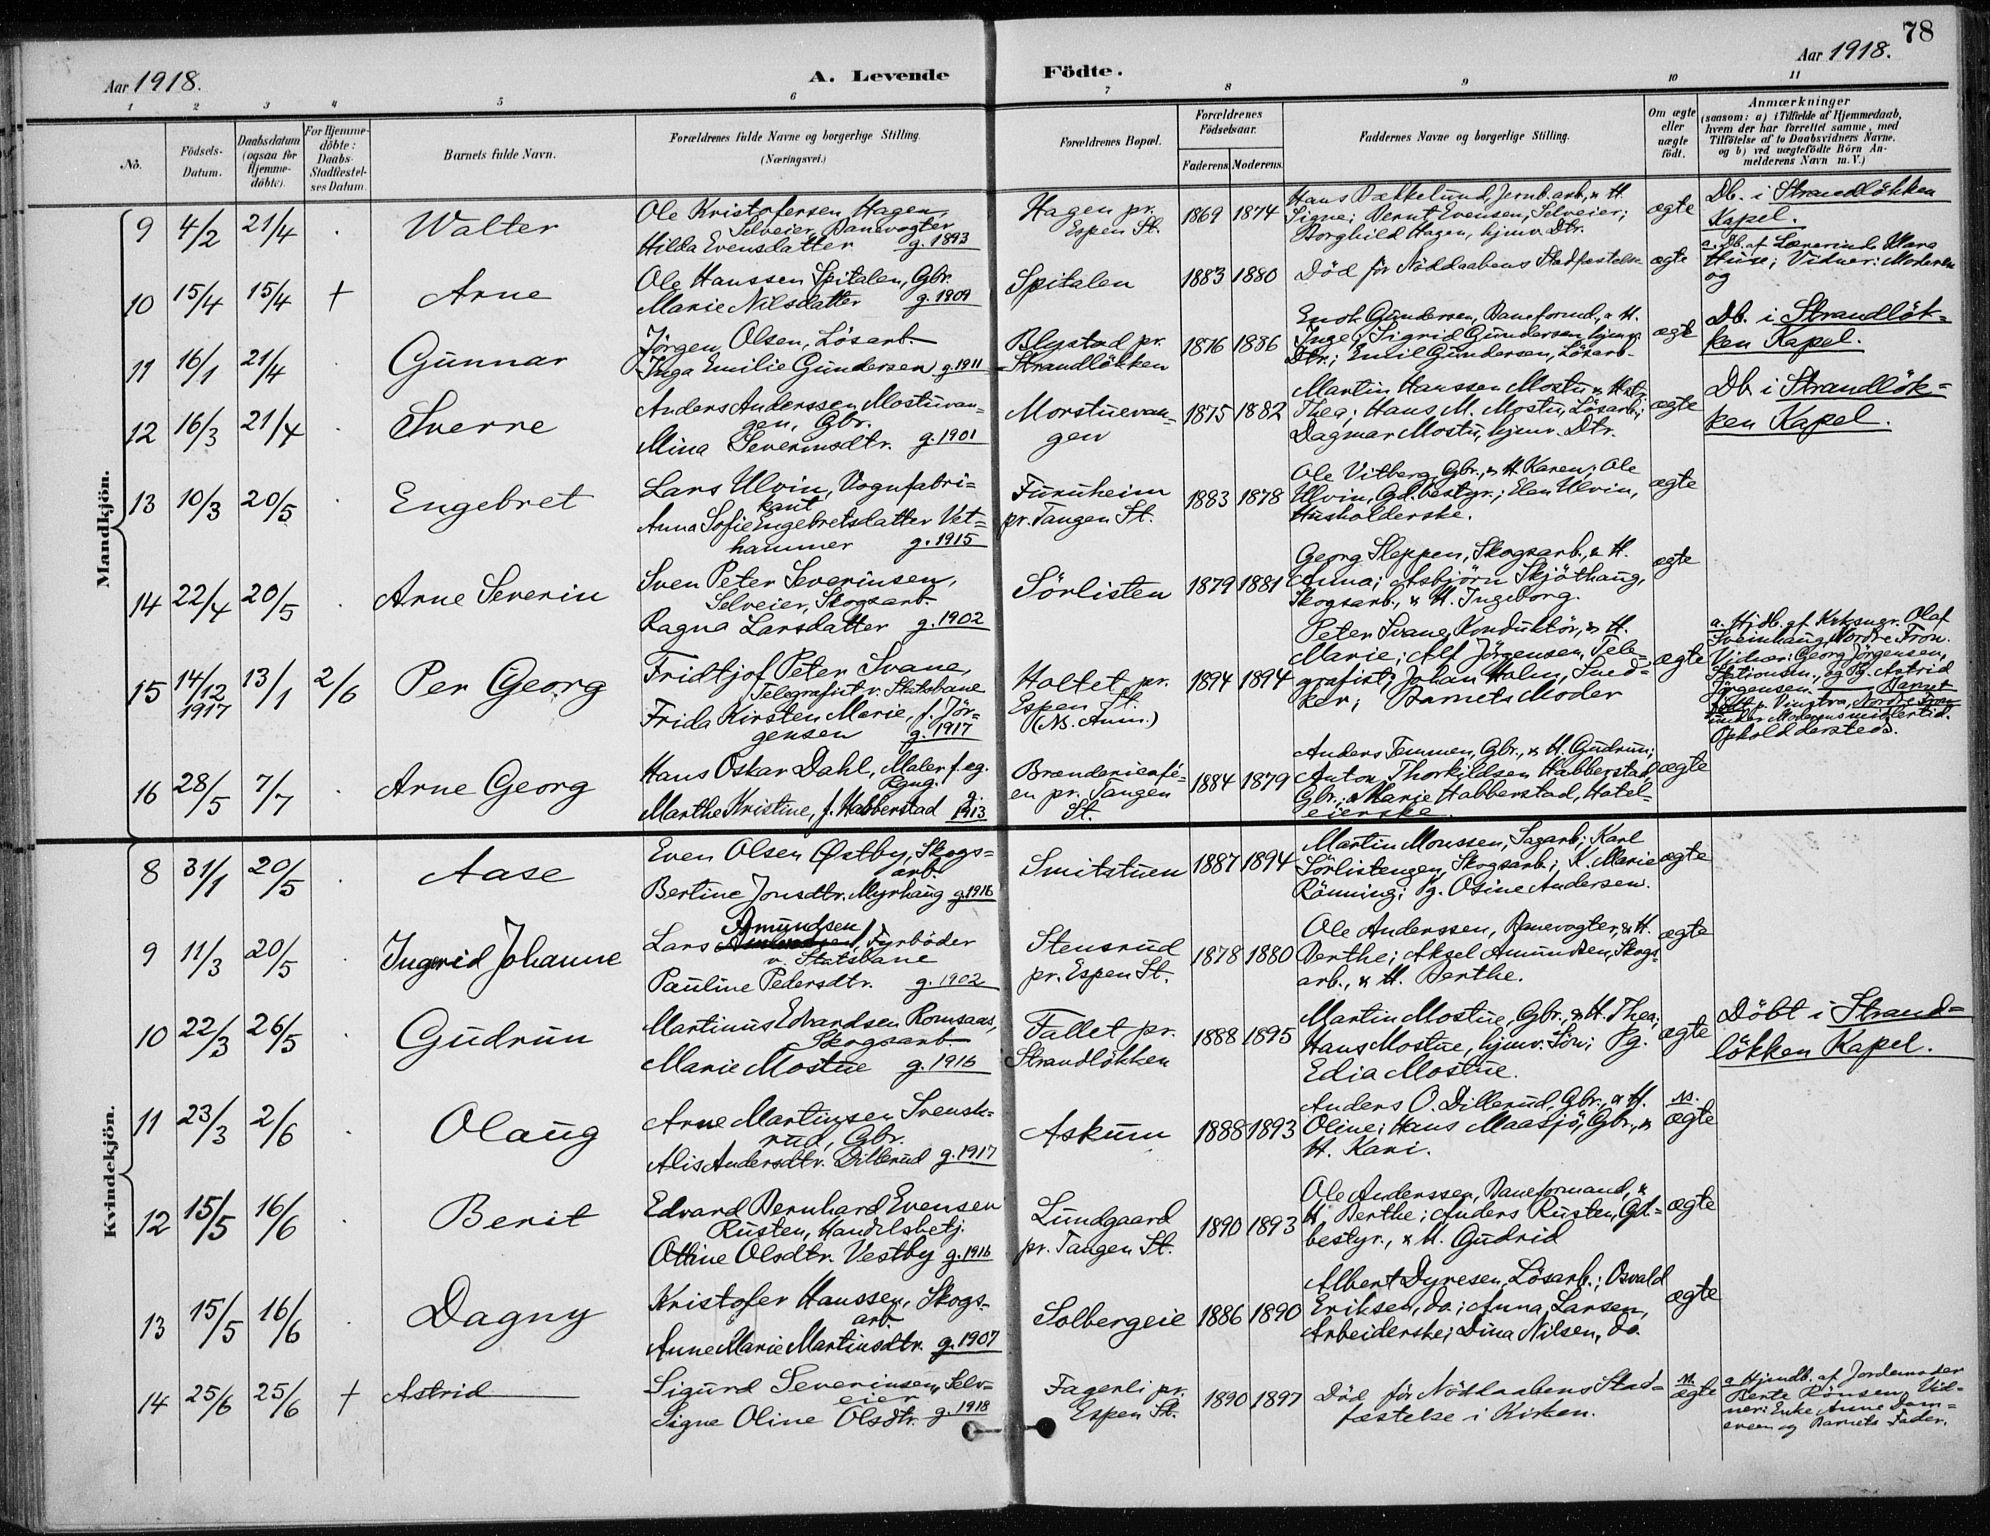 78
Aar 1918.
A. Levende
Födte.
Aar 1918.
1 2 3 4 5 6 7 8 9 10 11
No.
Födsels-Datum.
Daabsdatum (ogsaa for Hjemme-döbte).
For Hjemme-döbte: Daabs-Stadfæstel-ses Datum.
Barnets fulde Navn.
Forældrenes fulde Navne og borgerlige Stilling.
(Næringsvei.)
Forældrenes Bopæl.
Forældrenes Födselsaar.
Faderens. Moderens.
Faddernes Navne og borgerlige Stilling.
Om ægte eller uægte födt.
Anmærkninger
(saasom: a) i Tilfælde af Hjemmedaab,
hvem der har forrettet samme, med
Tilföielse af to Daabsvidners Navne.
og b) ved uægtefödte Börn An-
melderens Navn m. V.)
Mandkjön.
9 4/2 21/4 . Walter
Ole Kristofersen Hagen,
Selveier, Banevogter
Hilda Evensdatter g. 1893
Hagen pr.
Espen St.
1869 1874
Hans Bækkelund, Jernb.arb., & H.
Signe; Bernt Evensen, Selveier;
Borghild Hagen, hjmv. Dtr.
ægte
Db. i Strandlökken
Kapel.
10 15/4 15/4 + Arne
Ole Hanssen Spitalen, Gbr.
Marie Nilsdatter g. 1909
Spitalen
1883 1880
Död för Nöddaabens Stadfæstelse
ægte
a. Db. af Lærerinde Klara
Huse; Vidner: Moderen
og
11 16/1 21/4 Gunnar
Jörgen Olsen, Lösarb.
Inga Emilie Gundersen g. 1911
Blystad pr.
Strandlökken
1876 1886
Enok Gundersen, Baneformd., & H.
Inge; Sigrid Gundersen, hjmv.
Dtr.; Emil Gundersen, Lösarb.
ægte
Db. i Strandlök=
ken Kapel.
12 16/3 21/4 . Sverre
Anders Anderssen Mostuvan=
gen, Gbr.
Mina Severinsdtr. g. 1901
Morstuevan=
gen
1875 1882
Martin Hanssen Mostu & Hst.
Thea; Hans M. Mostu, Lösarb.;
Dagmar Mostu, hjmv. Dtr.
ægte
Db i Strandlök=
ken Kapel.
13 10/3 20/5 . Engebret
Lars Ulvin, Vognfabri=
kant
Anna Sofie Engebretsdatter Vet=
hammer g. 1915
Furuheim
pr. Tangen St.
1883 1878
Ole Vitberg, Gbr., & H. Karen; Ole
Ulvin, Gd.bestyr.; Elen Ulvin,
Husholderske.
ægte
14 22/4 20/5 . Arne Severin
Sven Peter Severinsen,
Selveier, Skogsarb.
Ragna Larsdatter g. 1902
Sörlisten
1879 1881
Georg Sleppen, Skogsarb., & H.
Anna; Asbjörn Skjöthaug,
Skogsarb., & H. Ingeborg.
ægte
15 14/12 1917 13/1 2/6 Per Georg
Fridtjof Peter Svane,
Telegrafist v. Statsbane
Frida Kirsten Marie, f. Jör=
gensen g. 1917
Holtet pr.
Espen St.
(Ns. Anm.)
1894 1894
Peter Svane, Konduktör, & H.
Marie; Alf Jörgensen, Tele=
grafist; Johan Holm, Sned=
ker; Barnets Moder
ægte
a. Hjdb. af Krksngr. Olaf
Sveinhaug, Nordre Fron.
Vidner: Georg Jörgensen,
Stationsm., og Pg. Astrid
Jörgensen. — Barnet
födt p. Vinstra, Nordre Fron
under Moderens midlertid.
Ophold dersteds.
16 28/5 7/7 Arne Georg
Hans Oskar Dahl, Maler f. eg.
Rgng.
Marthe Kristine, f. Habberstad g. 1913
Brænderienfé=
en pr. Tangen
St.
1884 1879
Anders Temmen, Gbr., & H. Gudrun;
Anton Thorkildsen Habberstad,
Gbr.; & Marie Habberstad, Hotel=
eierske.
ægte
Kvindekjön.
8 31/1 20/5 . Aase
Even Olsen Østby, Skogs=
arb.
Bertine Jonsdtr. Myrhaug g. 1916
Smitstuen
1887 1894
Martin Monssen, Sagarb.; Karl
Sörlistengen, Skogsarb.; K. Marie
Rönning; Pg. Osine Andersen.
ægte
9 11/3 20/5 . Ingrid Johanne
Amundsen
Lars Fyrböder
v. Statsbane
Pauline Pedersdtr. g. 1902
Stensrud
pr. Espen St.
1878 1880
Ole Anderssen, Banevogter, & H.
Berthe; Aksel Amundsen, Skogs=
arb., & H. Berthe.
ægte
10 22/3 26/5 . Gudrun
Martinus Edvardsen Romsaas,
Skogsarb.
Marie Mostue g. 1916
Fallet pr.
Strandlökken
1888 1895
Martin Mostue, Gbr., & H. Thea;
Hans Mostue, hjmv. Sön; Pg.
Edia Mostue.
ægte
Döbt i Strand=
lökken Kapel.
11 23/3 2/6 . Olaug
Arne Martinsen Svensk=
rud, Gbr.
Alis Andersdtr. Dillerud g. 1917
Askum
1888 1893
Anders O. Dillerud, Gbr., & H.
Oline; Hans Maasjö, Gbr., &
H. Kari.
Ns.
ægte
12 15/5 16/6 . Berit
Edvard Bernhard Evensen
Rusten, Handelsbetj.
Othine Olsdtr. Vestby g. 1916
Lundgaard
pr. Tangen St.
1890 1893
Ole Anderssen, Baneformand, &
H. Berthe; Anders Rusten, Gd.=
bestyr., & H. Gudrid
ægte
13 15/5 16/6 . Dagny
Kristofer Hanssen, Skogs=
arb.
Anne Marie Martinsdtr. g. 1907
Solbergeie
1886 1890
Albert Dyresen, Lösarb.; Osvald
Eriksen, do.; Anna Larsen,
Arbeiderske; Dina Nilsen, do.
ægte
14 25/6 25/6 + Astrid
Sigurd Severinsen, Selv=
eier
Signe Oline Olsdtr. g. 1918
Fagerli pr.
Espen St.
1890 1897
Död för Nöddaabens Stad=
fæstelse i Kirken.
Ns.
ægte
a. Hjemdb. af Jordemoder
Berte Rönsen. Vid=
ner: Enke Anne Dam=
sveen og Barnets Fader.